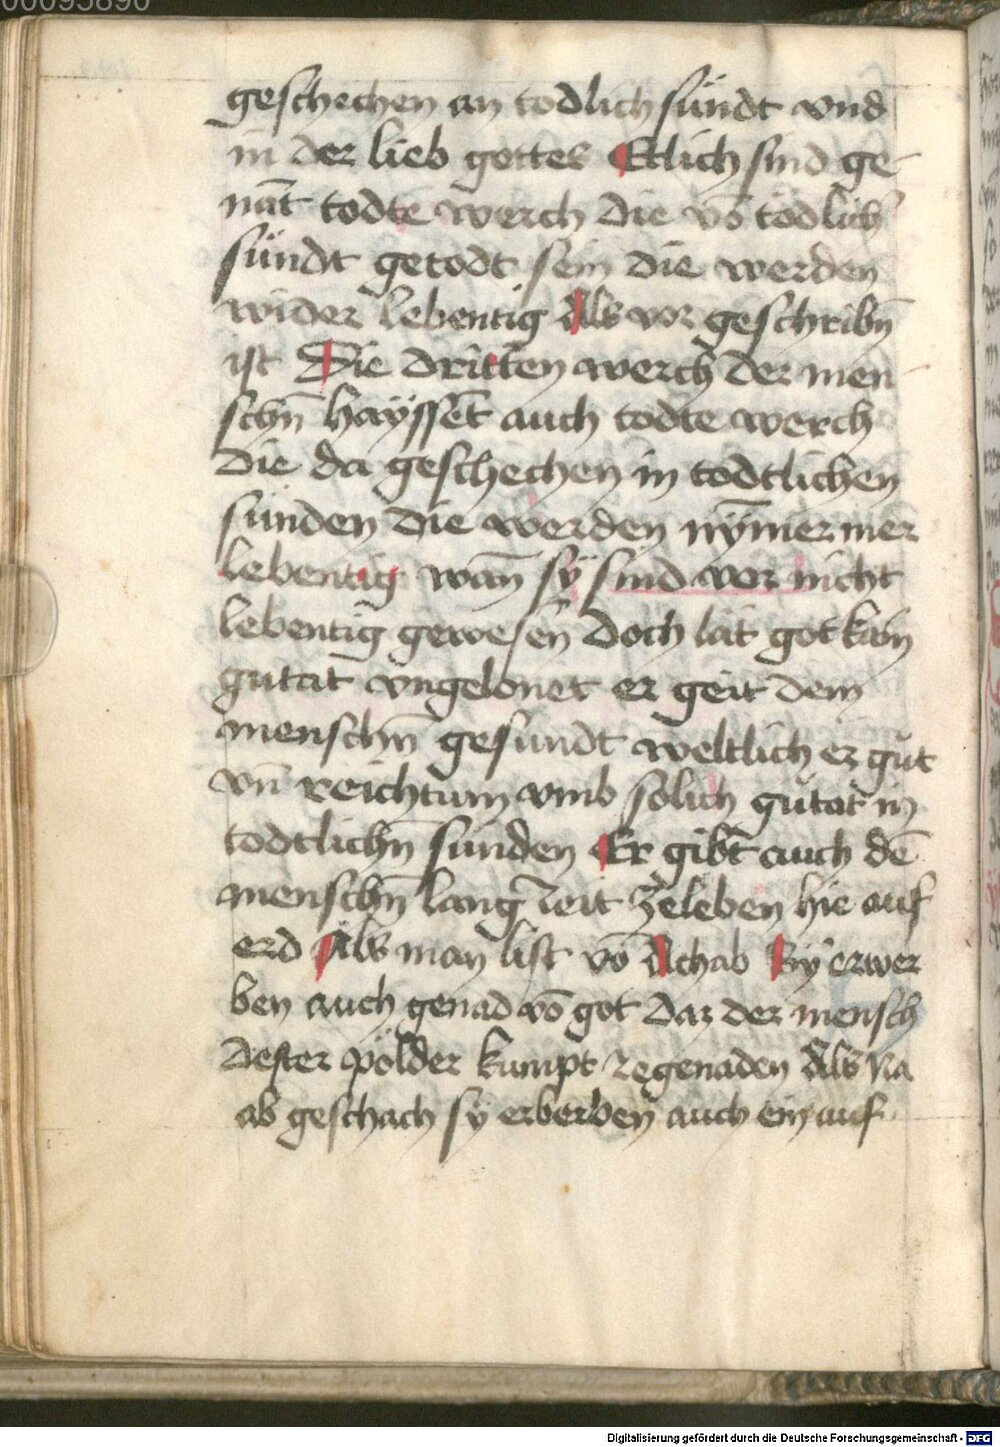 00095890
geschechen an todlich sündt vnd
in der lieb gottes Etlich sind ge-
nāt todte werch die vō todlich
sündt getodt sein die werden
wider lebentig Als vor geschribn̄
ist Die dritten werch der men
schn̄ hayssēt auch todte werch
die da geschechen in todtlichen
sunden die werden nȳmer mer
lebentig wan̄ sÿ sind vor nicht
lebentig gewesen doch lät got kain
gutat vngelonet er geit dem
menschn̄ gesundt weltlich er gůt
vn̄ reichtum vmb solich gůtat in
todtlichn̄ sunden Er gibt auch dē
menschn̄ lang zeit zeleben hie auf
erd Als man list vō Achab Sy erwer
ben auch genad vō got daz der mensch
dester pölder kumpt zegenaden Als Na
ab geschach sy erberben auch ein auf
Digitalisierung gefördert durch die Deutsche Forschungsgemeinschaft - DFG